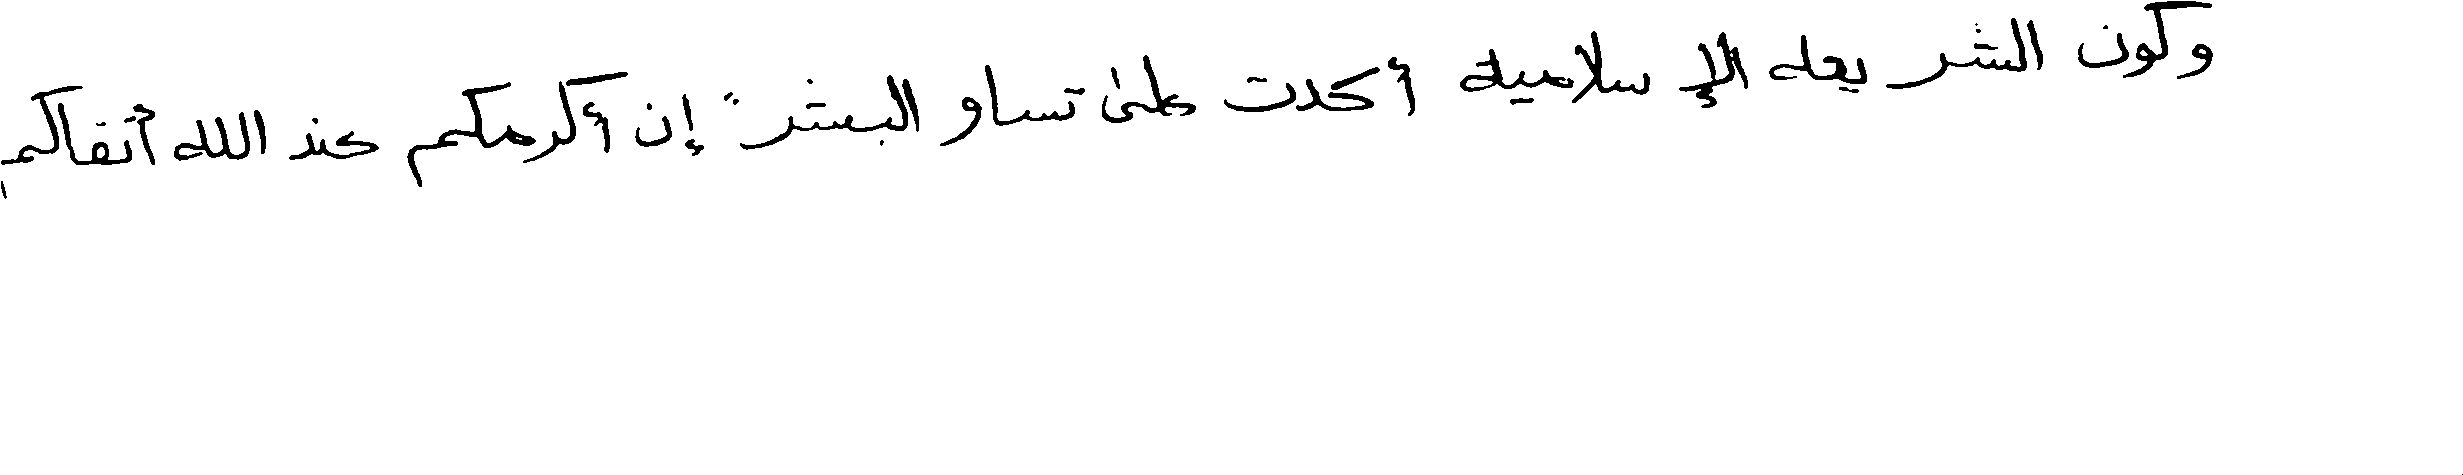 وكون الشريعه الإسلامية أكدت على تساو البشر " إن أكرمكم عند الله أتقاكم